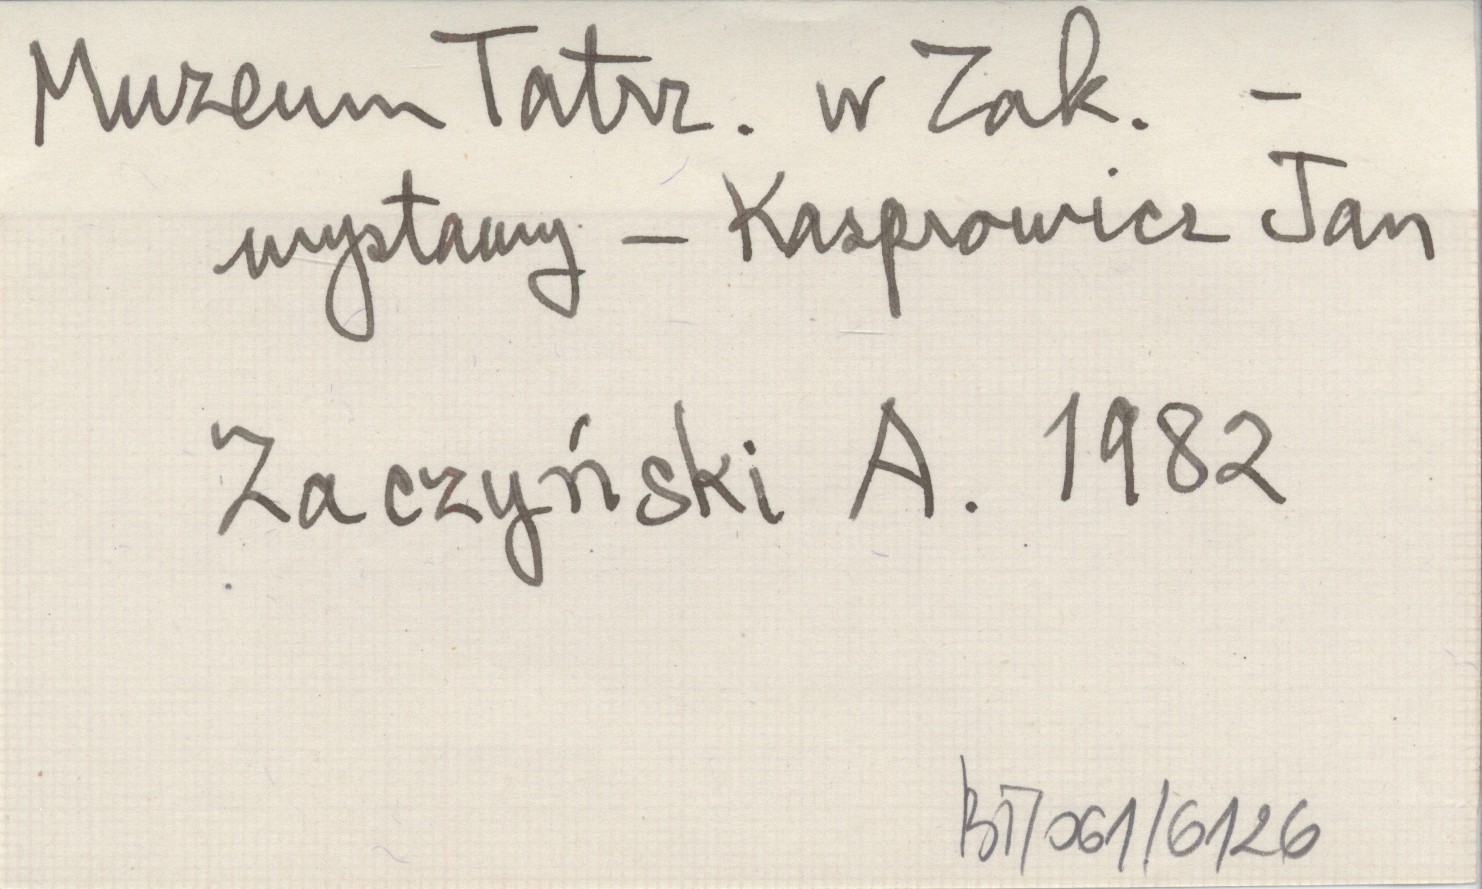 Muzeum Tatrz. w Zak. –
wystawy – Kasprowicz Jan
Zaczyński A. 1982
BT/061/6126